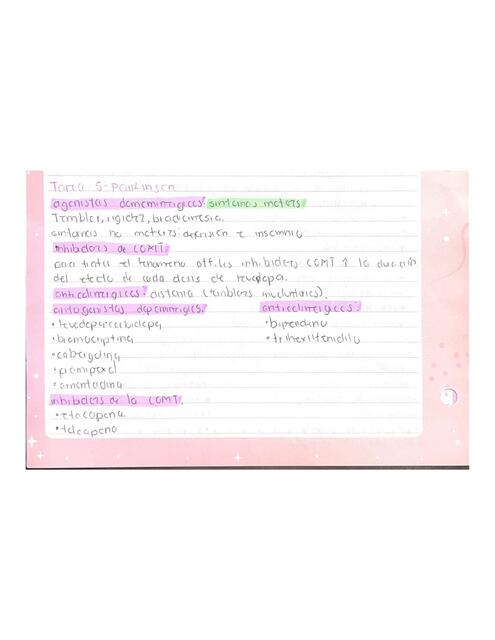 Tarea 5-parkinson
agonistas dopaminergicos: sintomas motores:
Temblor, rigidez, bradicinesia.
sintomas no motores: depresion e insomnio
inhibidores de COMT:
para tratar el fenomeno off. los inhibidores COMT ↑ la duración
del efecto de cada dosis de levodopa.
anticolinergicos: distonia (temblores involuntarios).
antagonistas dopaminergicos: anticolinergicos:
• levodopa-carbidopa • biperideno
• bromocriptina • trihexifenidilo
• cabergolina
• pramipexol
• amantadina
inhibidores de la COMT.
• etacapona
• tolcapona